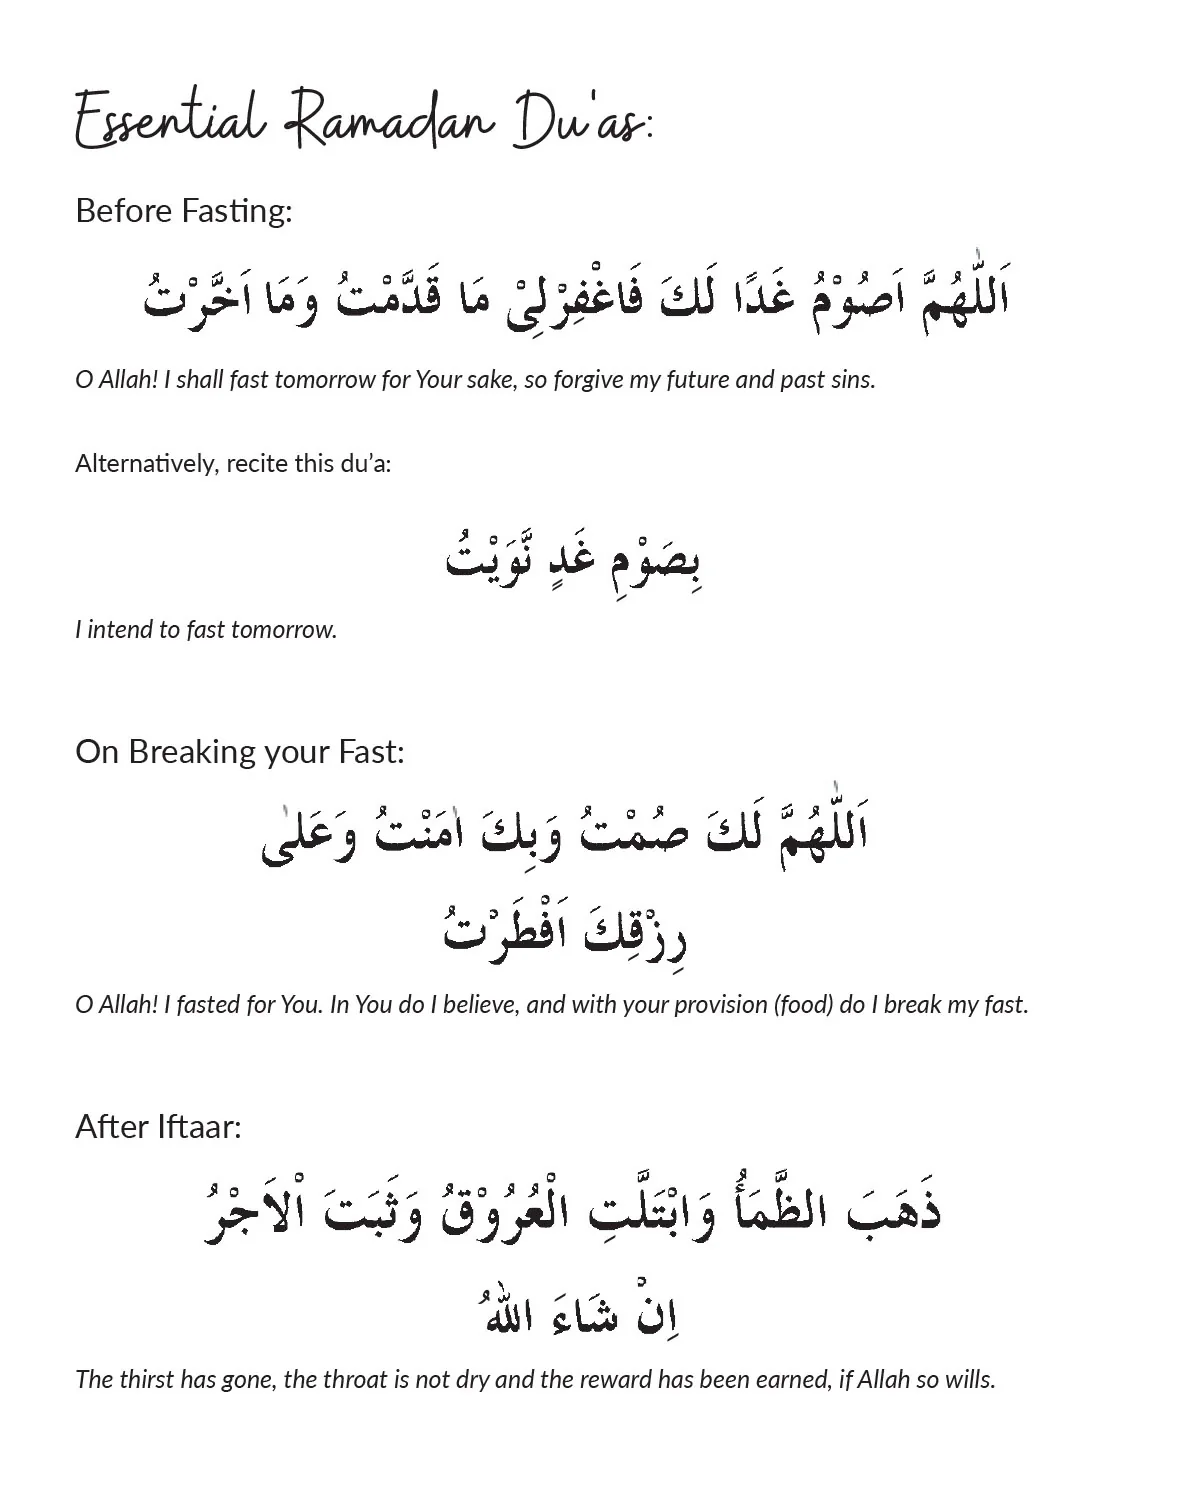 Essential Ramadan Du'as:
Before Fasting:
اَللّٰهُمَّ اَصُوْمُ غَدًا لَكَ فَاغْفِرْلِيْ مَا قَدَّمْتُ وَمَا اَخَّرْتُ
O Allah! I shall fast tomorrow for Your sake, so forgive my future and past sins.
Alternatively, recite this du’a:
بِصَوْمِ غَدٍ نَّوَيْتُ
I intend to fast tomorrow.
On Breaking your Fast:
اَللّٰهُمَّ لَكَ صُمْتُ وَبِكَ اٰمَنْتُ وَعَلٰى
رِزْقِكَ اَفْطَرْتُ
O Allah! I fasted for You. In You do I believe, and with your provision (food) do I break my fast.
After Iftaar:
ذَهَبَ الظَّمَأُ وَابْتَلَّتِ الْعُرُوْقُ وَثَبَتَ اْلاَجْرُ
اِنْ شَاءَ اللهُ
The thirst has gone, the throat is not dry and the reward has been earned, if Allah so wills.